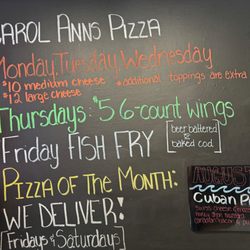 CAROL ANNS PIZZA
Monday, Tuesday, Wednesday
*$10 medium cheese
*additional toppings are extra
*$12 large cheese
Thursdays: $5 6-count wings
Friday FISH FRY
[beer battered &
baked cod]
PIZZA OF THE MONTH:
WE DELIVER!
[Fridays & Saturdays]
AUGUST
Cuban Pi